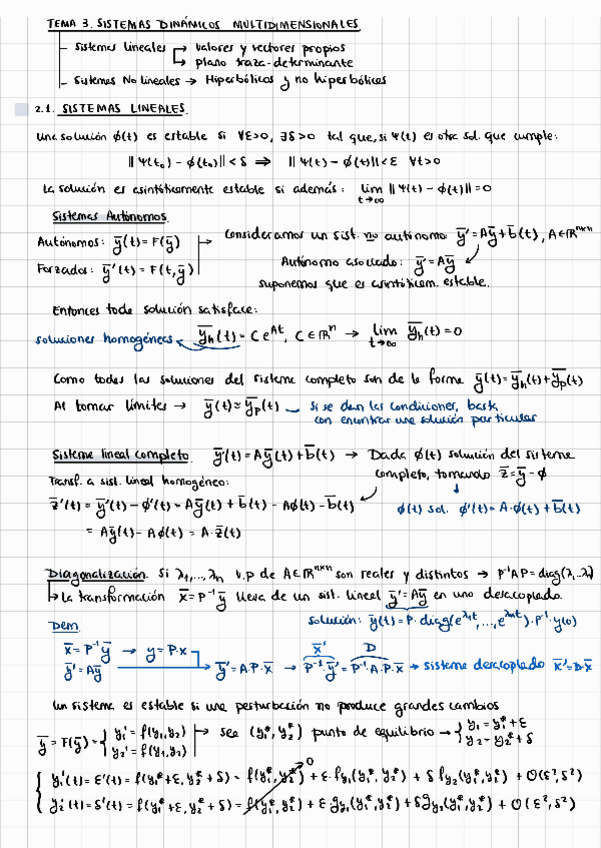 TEMA 3. SISTEMAS DINÁMICOS MULTIDIMENSIONALES
- Sistemas lineales → valores y vectores propios
→ plano traza-determinante
- Sistemas No lineales → Hiperbólicos y no hiperbólicos
2.1. SISTEMAS LINEALES.
Una solución ϕ(t) es estable si ∀ε>0, ∃δ>0 tal que, si Ψ(t) es otra sol. que cumple:
||Ψ(t₀) - ϕ(t₀)|| < δ ⇒ ||Ψ(t) - ϕ(t)|| < ε ∀t>0
La solución es asintóticamente estable si además: lim t→∞ ||Ψ(t) - ϕ(t)|| = 0
Sistemas Autónomos.
Autónomos: ȳ(t) = F(ȳ) → Consideramos un sist. no autónomo ȳ' = Aȳ + b̄(t), A∈ℝⁿˣⁿ
Forzados: ȳ'(t) = F(t, ȳ) Autónomo asociado: ȳ' = Aȳ
suponemos que es asintóticam. estable.
Entonces toda solución satisface:
soluciones homogéneas ȳₕ(t) = C e^{At}, C∈ℝⁿ → lim t→∞ ȳₕ(t) = 0
Como todas las soluciones del sistema completo son de la forma ȳ(t) = ȳₕ(t) + ȳₚ(t)
Al tomar límites → ȳ(t) ≈ ȳₚ(t) — si se dan las condiciones, basta
con encontrar una solución particular
Sistema lineal completo. ȳ'(t) = Aȳ(t) + b̄(t) → Dada ϕ(t) solución del sistema
Transf. a sist. lineal homogéneo: completo, tomando z̄ = ȳ - ϕ
z̄'(t) = ȳ'(t) - ϕ'(t) = Aȳ(t) + b̄(t) - Aϕ(t) - b̄(t) ϕ(t) sol. ϕ'(t) = A·ϕ(t) + b̄(t)
= Aȳ(t) - Aϕ(t) = A·z̄(t)
Diagonalización. Si λ₁,...,λₙ v.p de A∈ℝⁿˣⁿ son reales y distintos → P⁻¹AP = diag(λ₁..λₙ)
↳ La transformación x̄ = P⁻¹ȳ lleva de un sist. lineal ȳ' = Aȳ en uno desacoplado.
Dem solución: ȳ(t) = P·diag(e^{λ₁t},...,e^{λₙt})·P⁻¹·y(0)
x̄ = P⁻¹ȳ → y = P·x x̄' D
ȳ' = Aȳ → ȳ' = A·P·x̄ → P⁻¹·ȳ' = P⁻¹·A·P·x̄ → sistema desacoplado x̄' = D·x̄
Un sistema es estable si una perturbación no produce grandes cambios
ȳ = F(ȳ) = { y₁' = f(y₁,y₂) → sea (y₁*, y₂*) punto de equilibrio → { y₁ = y₁* + ε
y₂' = f(y₁,y₂) y₂ = y₂* + δ
{ y₁'(t) = ε'(t) = f(y₁*+ε, y₂*+δ) = f(y₁*,y₂*) + ε·f_{y₁}(y₁*,y₂*) + δ f_{y₂}(y₁*,y₂*) + O(ε²,δ²) 0
y₂'(t) = δ'(t) = f(y₁*+ε, y₂*+δ) = f(y₁*,y₂*) + ε g_{y₁}(y₁*,y₂*) + δ g_{y₂}(y₁*,y₂*) + O(ε²,δ²)